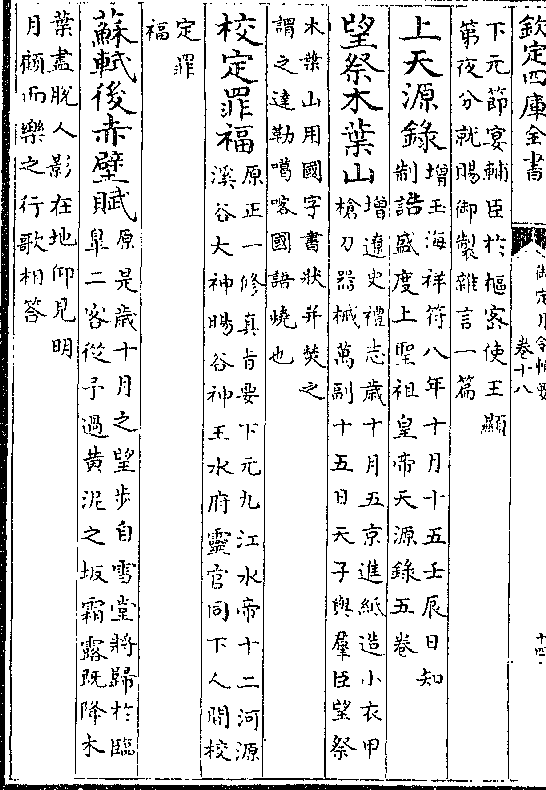 欽定四庫全書
御定月令輯要
卷十八
十四
下元節宴輔臣於樞密使王顯
第夜分就賜御製雜言一篇
上天源錄
增玉海祥符八年十月十五壬辰日知
制誥盛度上聖祖皇帝天源錄五卷
望祭木葉山
增遼史禮志歲十月五京進紙造小衣甲
槍刀器械萬副十五日天子與羣臣望祭
木葉山用國字書狀并焚之
謂之達勒噶喀國語燒也
校定罪福
原正一修真旨要下元九江水帝十二河源
溪谷大神暘谷神王水府靈官同下人間校
定罪
福
蘇軾後赤壁賦
原是歲十月之望步自雪堂將歸於臨
臯二客從予過黄泥之坂霜露既降木
葉盡脱人影在地仰見明
月顧而樂之行歌相答